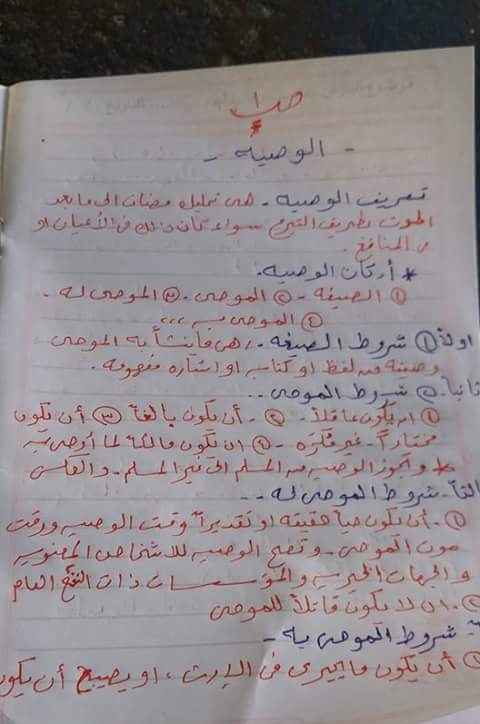 ص ١
- الوصيه -
تعريف الوصيه - هى تمليك مضاف الى ما بعد
الموت بطريق التبرع سواء كان ذلك فى الأعيان او
من المنافع .
* أركان الوصيه .
① الصيغه - ② الموصى - ③ الموصى له -
④ الموصى به ،،،
اولاً ① شروط الصيغه - هى ما ينشأ به الموصى
وصيته من لفظ او كتابه او اشاره مفهومه .
ثانياً - شروط الموصى ..
① ان يكون عاقلاً - ② - أن يكون بالغاً ③ أن يكون
مختاراً - غير مُكرَه - ان يكون مالكاً لما أوصى به
* وتجوز الوصيه من المسلم الى غير المسلم - والعكس
شروط الموصى له - -
① - أن يكون حياً حقيقه او تقديراً وقت الوصيه ووقت
موت الموصى - وتصح الوصيه للاشخاص المعنويه
والجهات الخيريه والمؤسسات ذات النفع العام
- ان لا يكون قاتلاً للموصى
شروط الموصى به -
أن يكون ما يجرى فى الإرث ، او يصح أن يكون